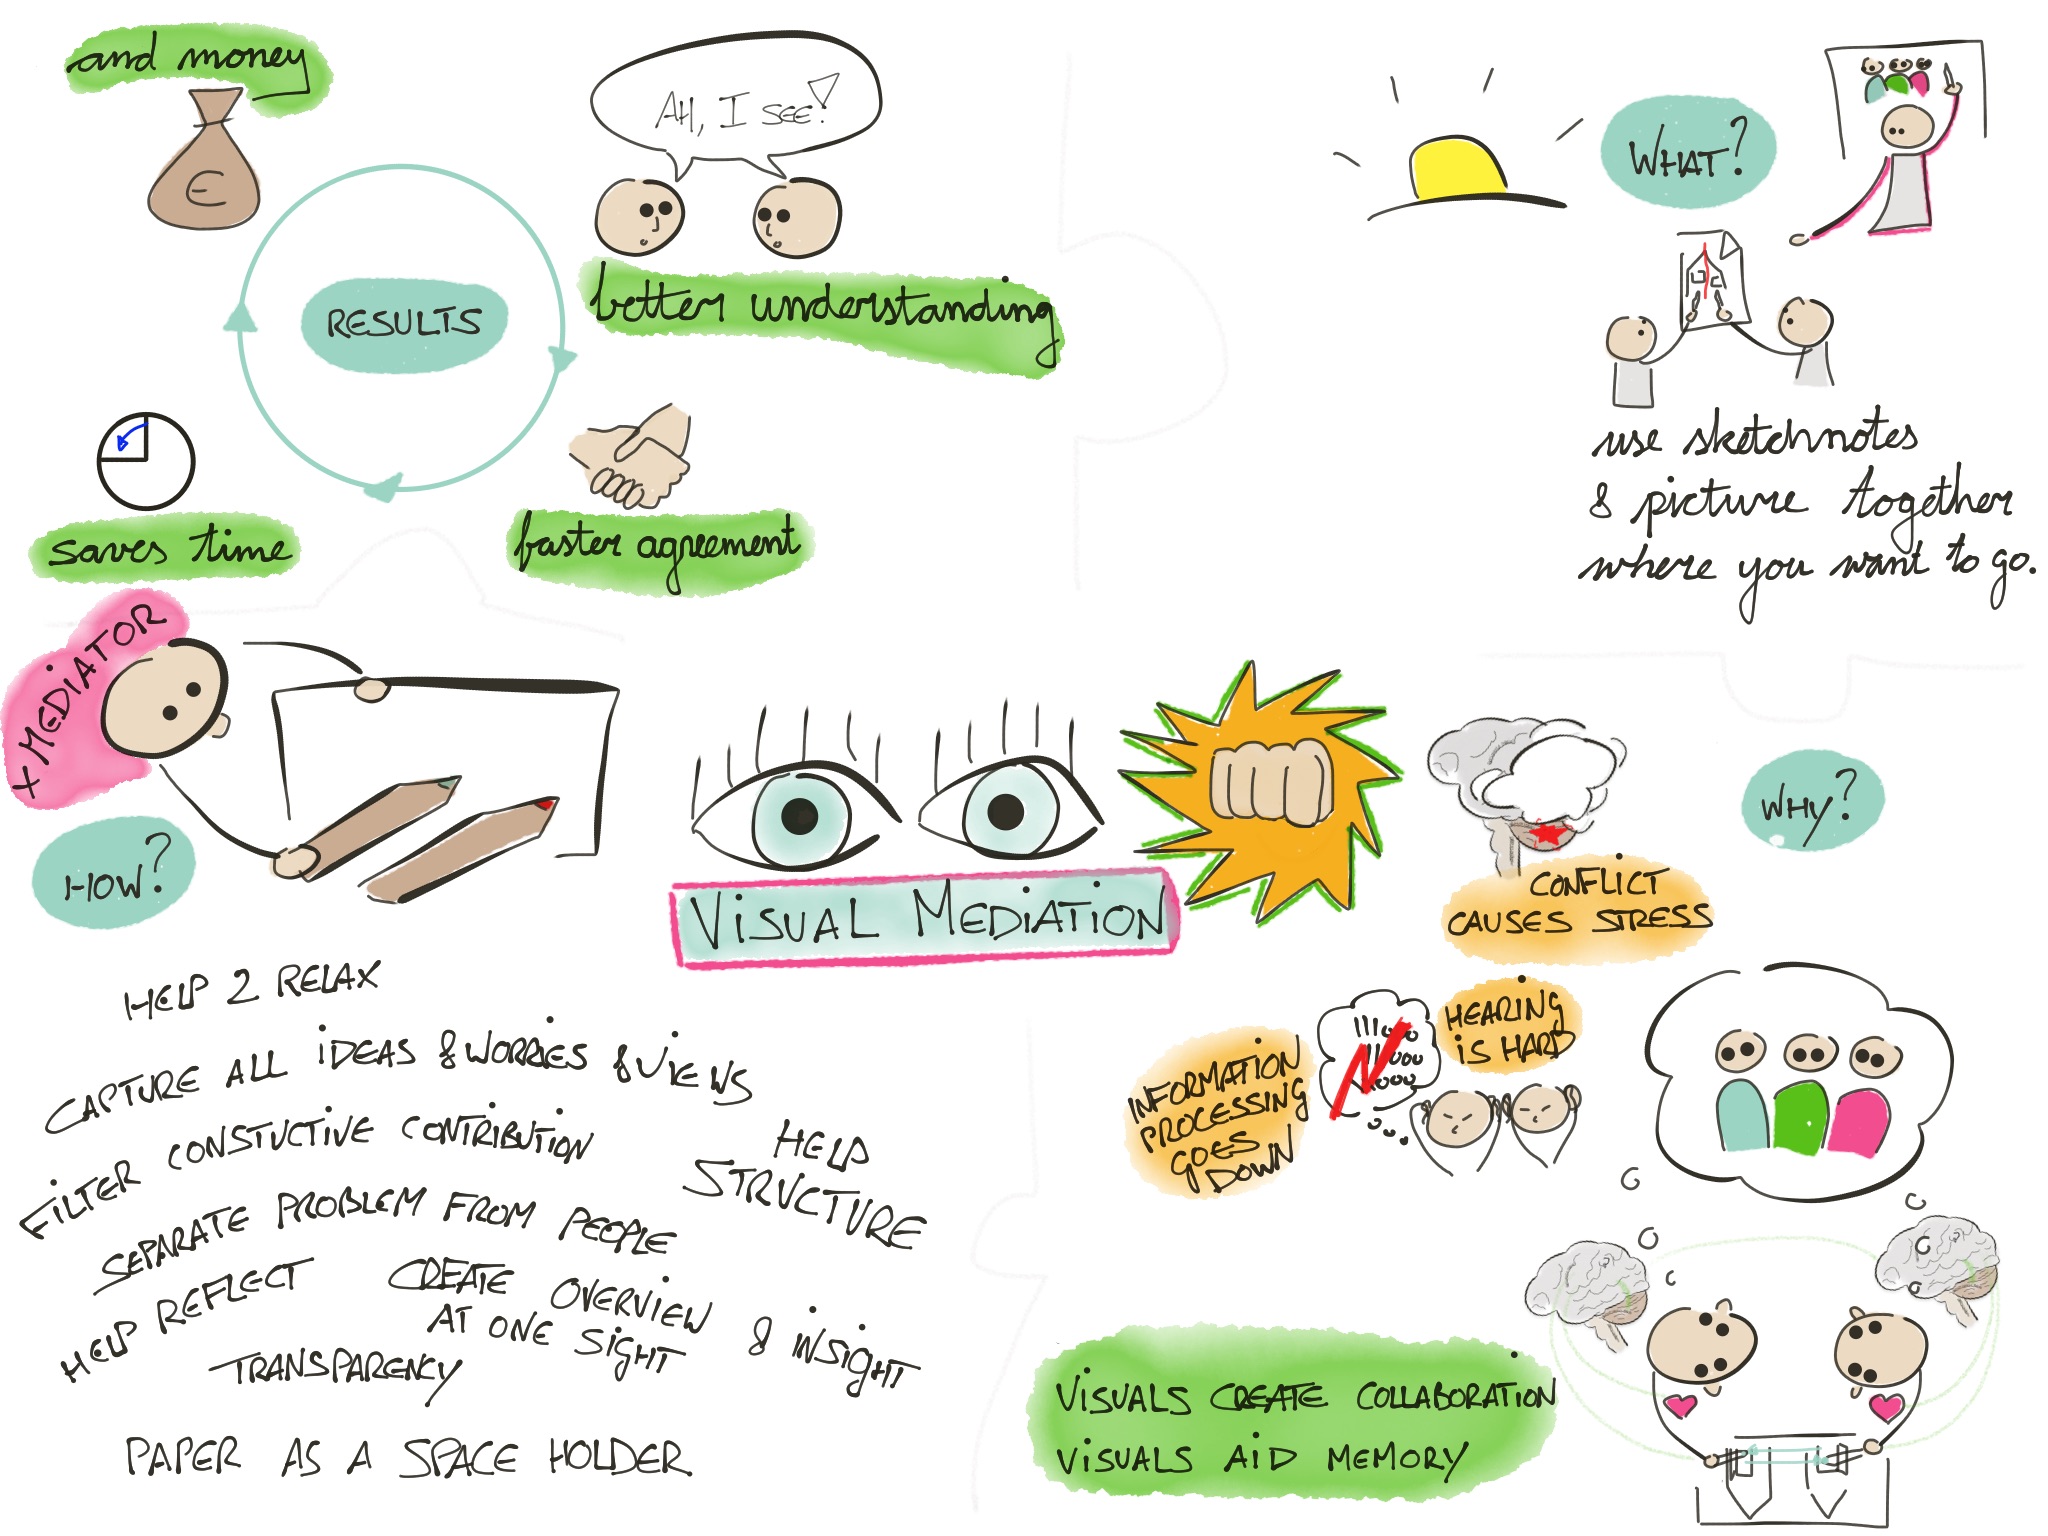 and money
€
AH, I SEE!
RESULTS
better understanding
saves time
faster agreement
WHAT?
use sketchnotes
& picture together
where you want to go.
+ MEDIATOR
HOW?
VISUAL MEDIATION
WHY?
CONFLICT
CAUSES STRESS
HEARING
IS HARD
INFORMATION
PROCESSING
GOES
DOWN
HELP 2 RELAX
CAPTURE ALL IDEAS & WORRIES & VIEWS
FILTER CONSTUCTIVE CONTRIBUTION
HELP
STRUCTURE
SEPARATE PROBLEM FROM PEOPLE
HELP REFLECT
CREATE OVERVIEW
AT ONE SIGHT
& INSIGHT
TRANSPARENCY
PAPER AS A SPACE HOLDER
VISUALS CREATE COLLABORATION
VISUALS AID MEMORY